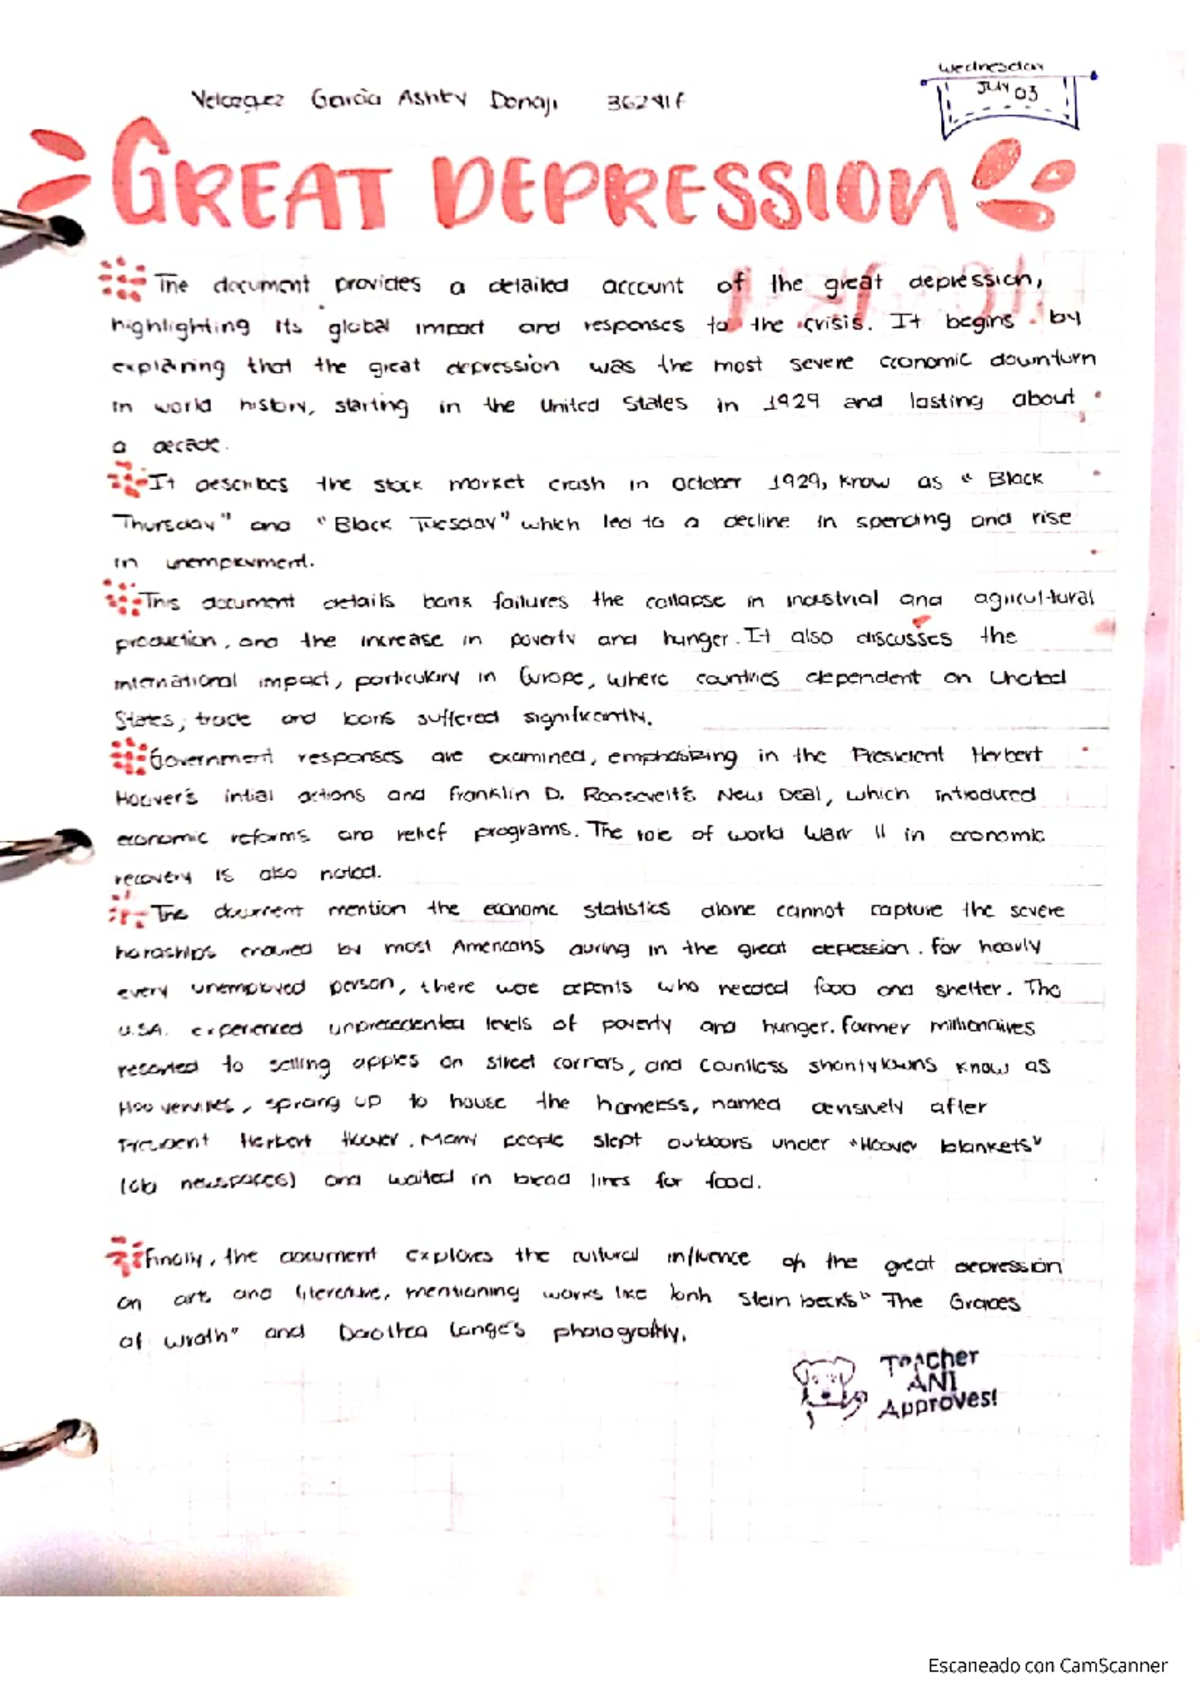 Wednesday
July 03
Velazquez Garcia Ashley Donaji 36241F
GREAT DEPRESSION
The document provides a detailed account of the great depression,
highlighting its global impact and responses to the crisis. It begins by
explaining that the great depression was the most severe economic downturn
in world history, starting in the United States in 1929 and lasting about
a decade.
It describes the stock market crash in october 1929, know as "Black
Thursday" and "Black Tuesday" which led to a decline in spending and rise
in unemployment.
This document details bank failures the collapse in industrial and agricultural
production, and the increase in poverty and hunger. It also discusses the
international impact, particulary in Europe, where countries dependent on United
States, trade and loans suffered significantly.
Government responses are examined, emphasizing in the President Herbert
Hoover's intial actions and Franklin D. Roosevelt's New Deal, which introdured
economic reforms and relief programs. The role of world warr II in economic
recovery is also noted.
The document mention the economic statistics alone cannot capture the severe
hardships endured by most Americans during in the great depression. for nearly
every unemployed person, there were depents who needed food and shelter. The
U.S.A. experienced unprecedented levels of poverty and hunger. Former millionaires
resorted to selling apples on street corners, and countless shantytowns know as
Hoovervilles, sprang up to house the homeless, named derisively after
President Herbert Hoover. Many people slept outdoors under "Hoover blankets"
(old newspapers) and waited in bread lines for food.
Finally, the document explores the cultural influence of the great depression
on art and literature, mentioning works like Jonh Stein beck's "The Grapes
of wrath" and Dorothea Lange's photography.
Teacher
ANI
Approves!
Escaneado con CamScanner